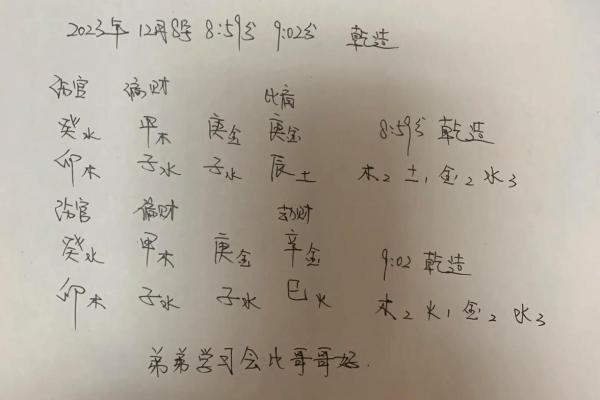 2023年 12月8号 8:59分 9:02分 乾造
伤官 偏财 比肩
癸水 甲木 庚金 庚金 8:59分 乾造
卯木 子水 子水 辰土 木2 土1 金2 水3
伤官 偏财 劫财
癸水 甲木 庚金 辛金 9:02 乾造
卯木 子水 子水 巳火 木2 火1 金2 水3
弟弟学习会比哥哥好.